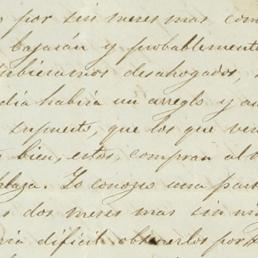 por seis meses mas com
bajarán y probablemente
tubieramos desahogados,
dia habria un arreglo y au
supuesto, que los que ven
bien, estos, compran al
plaza. Yo conozco una part
dos meses mas sin ni
ria dificil obtenerlos por